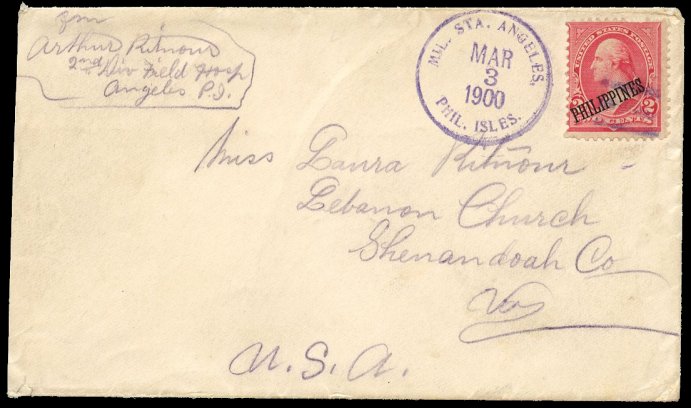 from
Arthur Ritnour
2nd Div Field Hosp
Angeles P.I.
MIL. STA. ANGELES,
MAR
3
1900
PHIL. ISLES.
UNITED STATES POSTAGE
PHILIPPINES
2 CENTS 2
Miss Laura Ritnour
Lebanon Church
Shenandoah Co
Va
U.S.A.